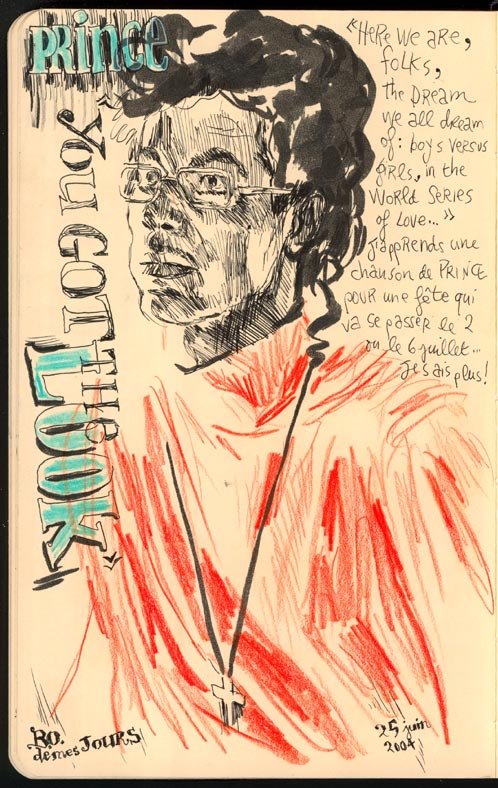 PRince
"You GOT THE LOOK"
"HeRe We aRe,
folks,
the DReam
we all dream
of: boys versus
girls, in the
WORLD SERIES
of Love..."
j'apprends une
chanson de PRINCE
pour une fête qui
va se passer le 2
ou le 6 juillet...
je sais plus!
BO.
de mes JOURS
25 juin
2004